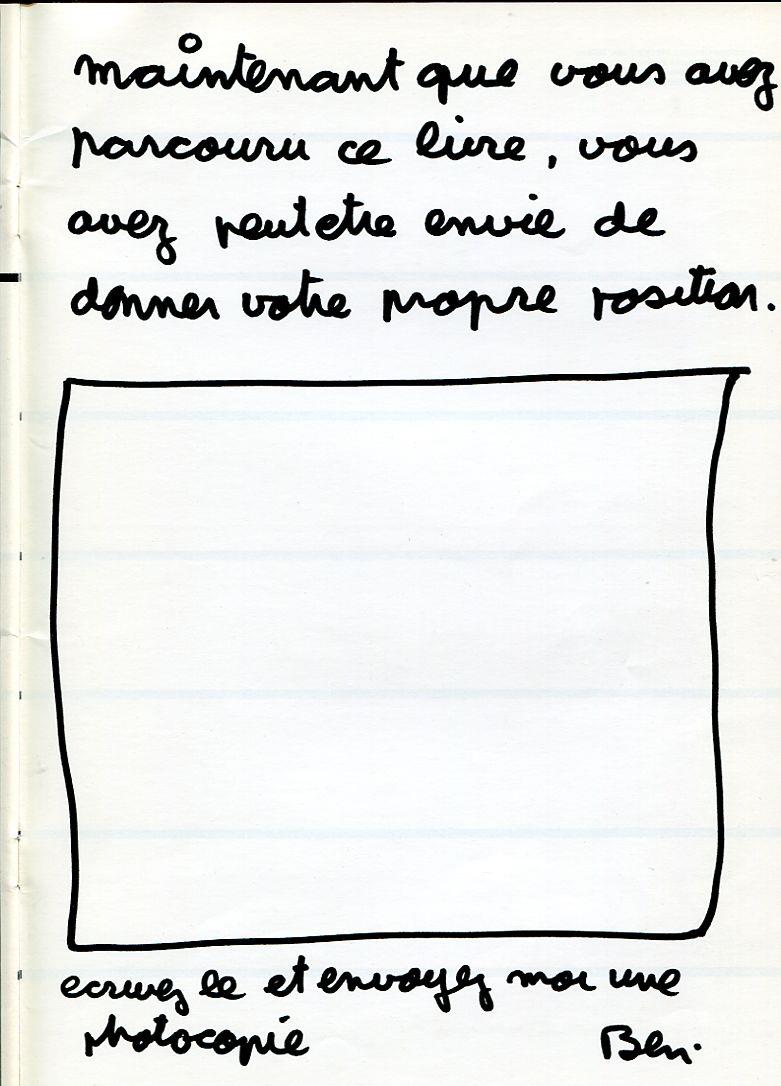 maintenant que vous avez
parcouru ce livre, vous
avez peutetre envie de
donner votre propre position.
ecrivez le et envoyez moi une
photocopie Ben.